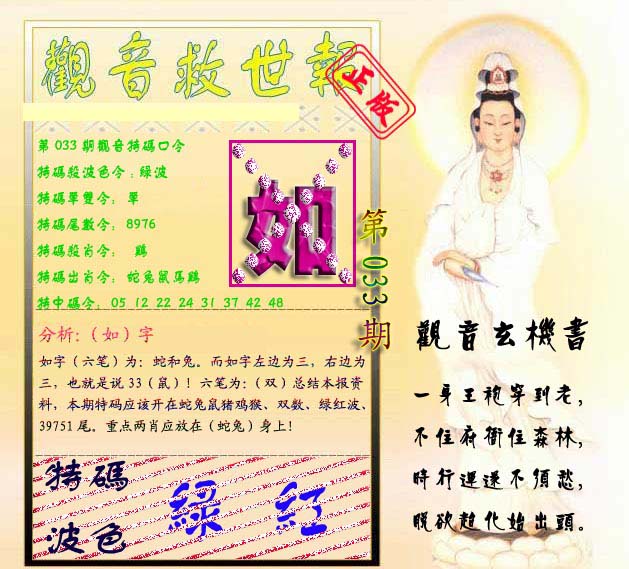 觀音救世報
正版
第033期觀音特碼口令
特碼殺波色令:綠波
特碼單雙令: 單
特碼尾數令: 8976
特碼殺肖令: 鷄
特碼出肖令: 蛇兔鼠馬鷄
特中碼令: 05 12 22 24 31 37 42 48
如
第033期
分析:（如）字
如字（六笔）为：蛇和兔。而如字左边为三，右边为
三，也就是说33（鼠）！六笔为：（双）总结本报资
料，本期特码应该开在蛇兔鼠猪鸡猴、双数、绿红波、
39751尾。重点两肖应放在（蛇兔）身上！
特碼
波色
綠 紅
觀音玄機書
一身王袍穿到老，
不住府衙住森林，
時行運遂不須愁，
脫欲超化始出頭。